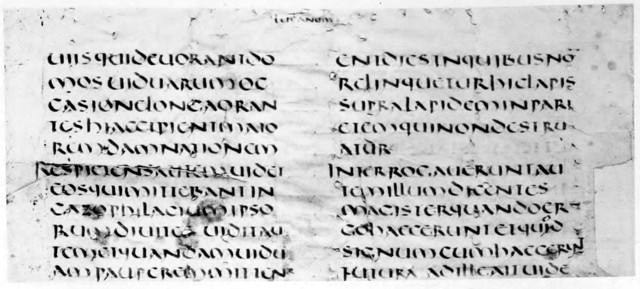 lucanum
UIISQUIDEUORANTDO
MOSUIDUARUMOC
CASIONELONGAORAN
TESHIACCIPIENTMAIO
REMDAMNATIONEM
RESPICIENSAUTEMUIDET
EOSQUIMITTEBANTIN
GAZOPHILACIUMIPSO
RUMDIUITESUIDITAU
TEMETQUANDAMUIDU
AMPAUPEREMMITTEN
ENTDIESINQUIBUSNŌ
RELINQUETURHICLAPIS
SUPRALAPIDEMINPARI
ETEMQUINONDESTRU
ATUR
INTERROGAUERUNTAU
TEMILLUMDICENTES
MAGISTERQUANDOER
GOHAECERUNTETQUOD
SIGNUMCUMHAECERIN
FUTURAADILLEAITUIDE